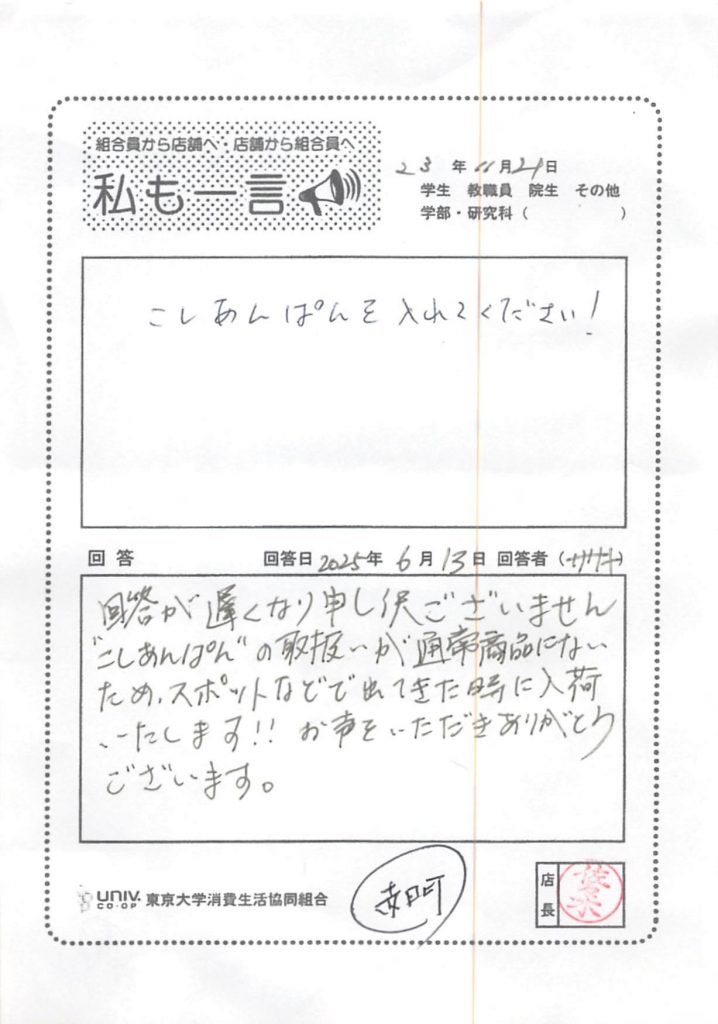 組合員から店舗へ・店舗から組合員へ
私も一言
23年11月21日
学生 教職員 院生 その他
学部・研究科( )
こしあんぱんを入れてください!
回答 回答日2025年6月13日 回答者(ササキ)
回答が遅くなり申し訳ございません
"こしあんぱん"の取扱いが通常商品にない
ため、スポットなどで出てきた時に入荷
いたします!! お声をいただきありがとう
ございます。
UNIV. CO-OP 東京大学消費生活協同組合
店長
佐々木